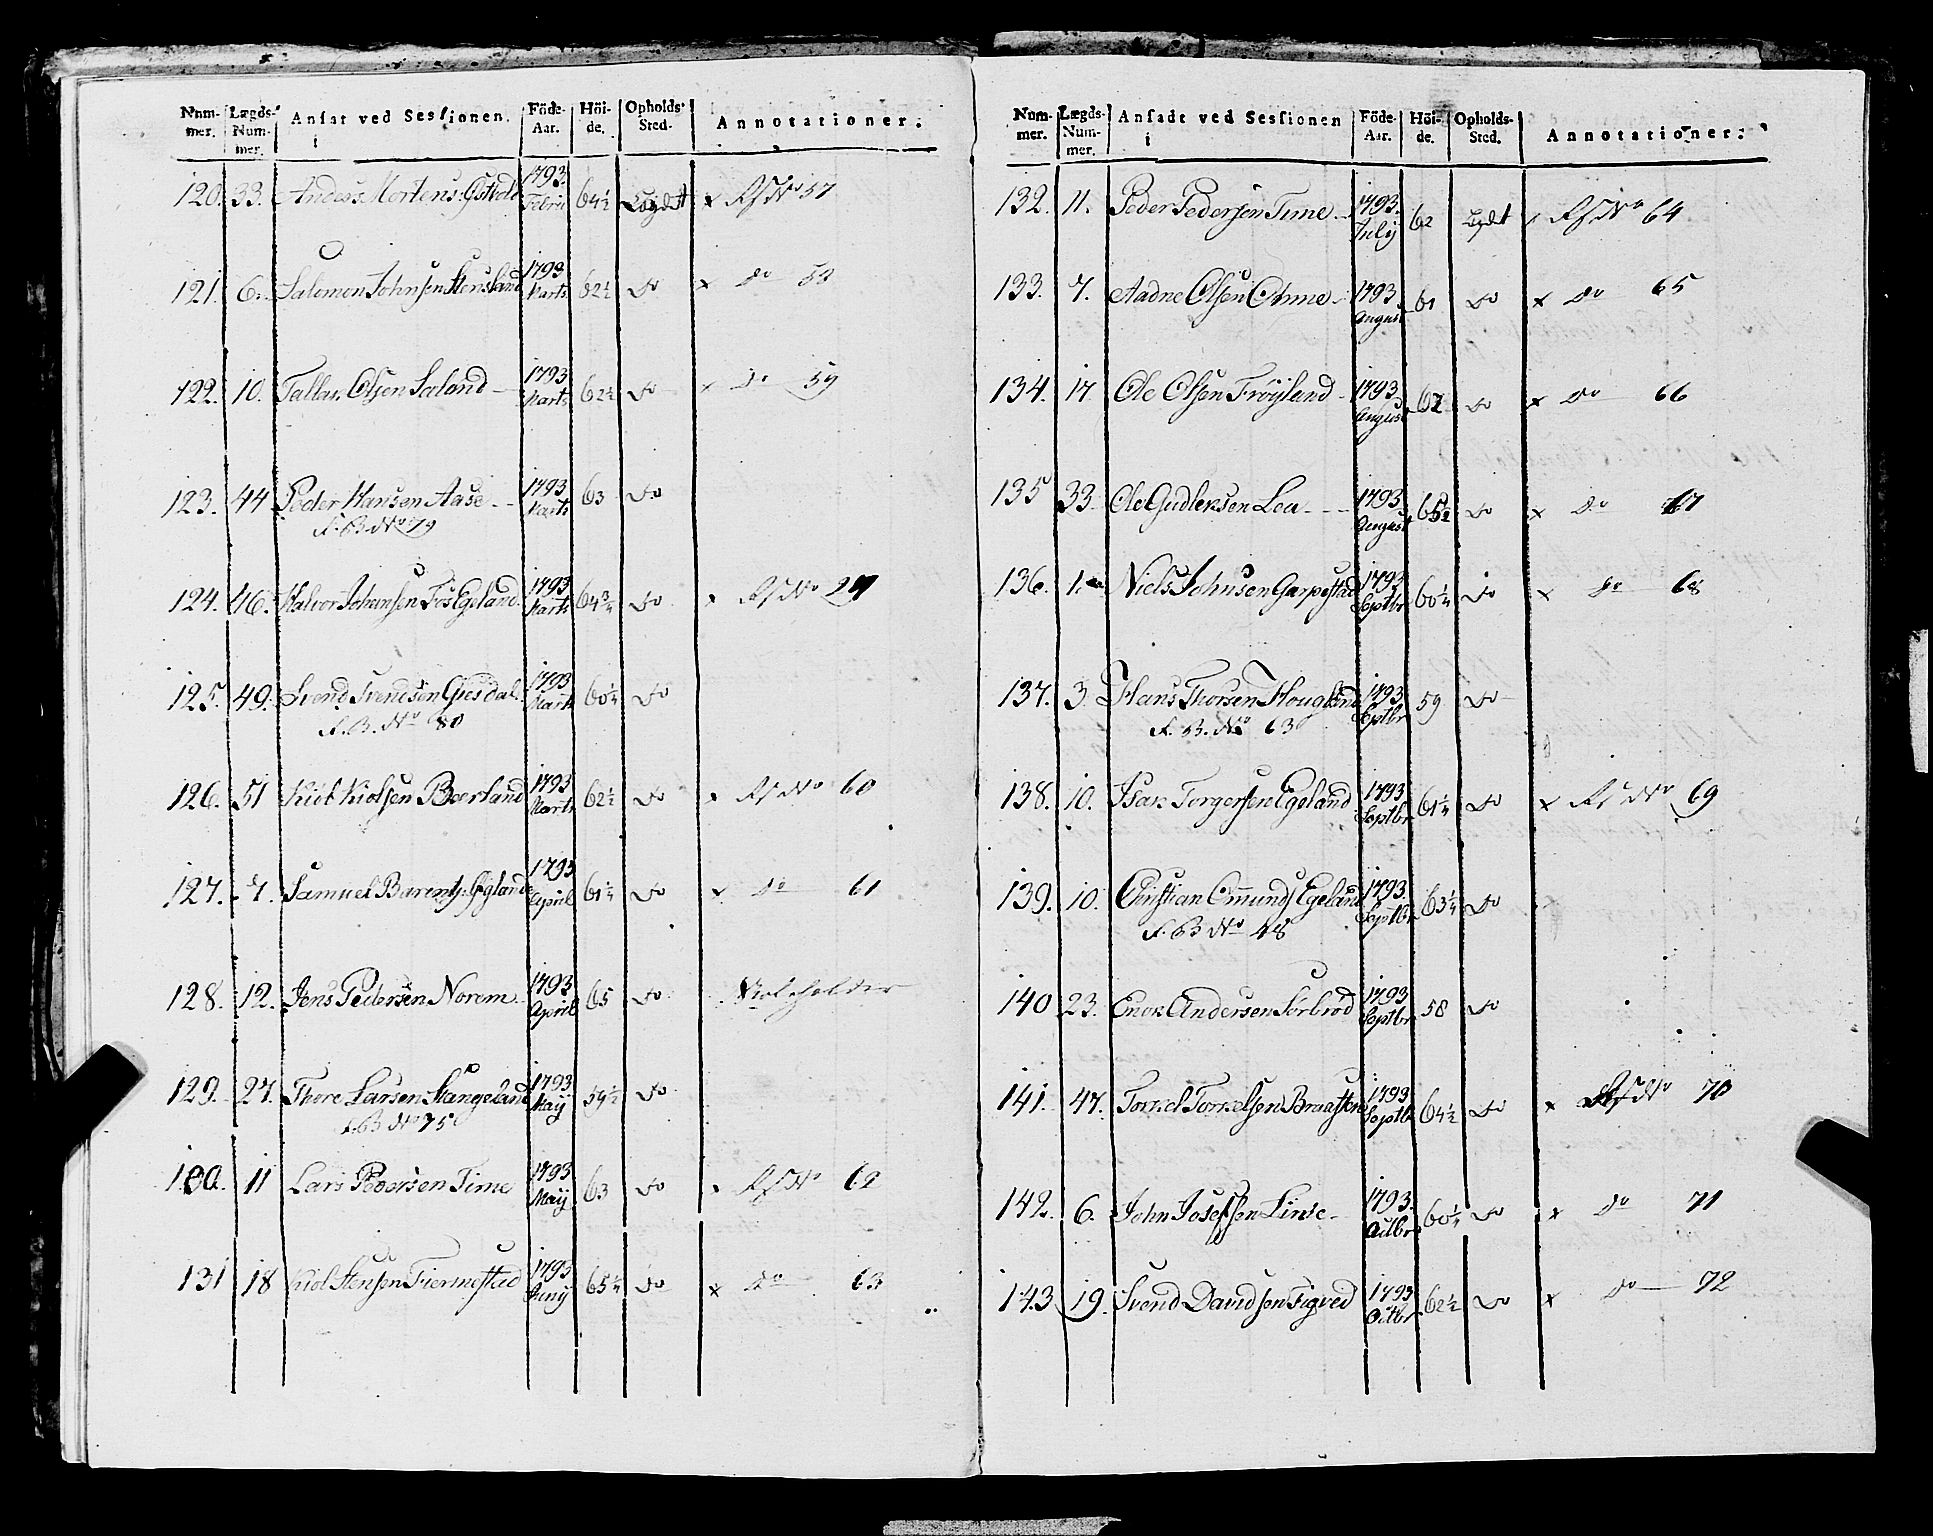 Num- mer. Lægds- Num- mer. Ansat ved Sessionen. Föde- Aar. Höi- de. Opholds- Sted. Annotationer.
120. 33. Anders Mortens: 1793. Febru 64½ Lægdet x RS No 57
121. 6. Salomon Johnsen 1793 Marts 62½ do x do 58
122. 10. Tallac Olsen Saland 1793 Marts 62½ do x do 59
123. 44 Peder Hansen Aase 1793 Marts 63 do
f. B No 79
124. 46. Halvor Johansen Fos Egeland 1793 Marts 64¾ do x RS No
125. 49. Svend Svendsen Giesdal 1793 Marts 60¼ do
f. B. No 80
126. 51 Kiöl Kiolsen Boerland 1793 Marts 62½ do x RS No 60
127. 7. Samuel Barents: 1793 April 61½ do x do 61
128. 12. Jens Pedersen Norem 1793 April 65 do
129. 27. Thore Larsen Stangeland 1793 Maij 59½ do
f. B No 75
130. 11 Lars Pedersen Time 1793 Maij 63 do x RS No 62
131 18 Kiöl Stensen Fiermestad 1793 Junij 65¼ do x do 63
Num- mer. Lægds- Num- mer. Ansadt ved Sessionen Föde- Aar. Höi- de. Opholds- Sted. Annotationer.
132. 11. Peder Pedersen Time 1793. Julij 62 Lgdt x RS No 64
133. 7. Aadne Olsen Ohme 1793 August 61 do x do 65
134. 17 Ole Olsen Fröyland 1793 August 62 do x do 66
135 33 Ole Gudleksen Lea 1793 August 65½ do x do 67
136. 1. Niels Johnsen Garpestad 1793 Septbr 60¼ do x do 68
137. 3. Hans Thorsen Hougland 1793 Septbr 59 do
f. B. No 63
138. 10. Isak Torgersen Egeland 1793 Septbr 61¼ do x RS No 69
139. 10. Christian Omunds Egeland 1793 Septbr 63¼ do
f. B No 48
140 23. Enok Andersen Sörbröd 1793 Septbr 58 do
141. 47. Torkel Torkelsen Braasteen 1793 Septbr 64½ do x RS No 70
142. 6. John Josefsen Linie 1793. Octbr 60¼ do x do 71
143 19. Svend Davidsen Tigved 1793 Octbr 62½ do x do 72